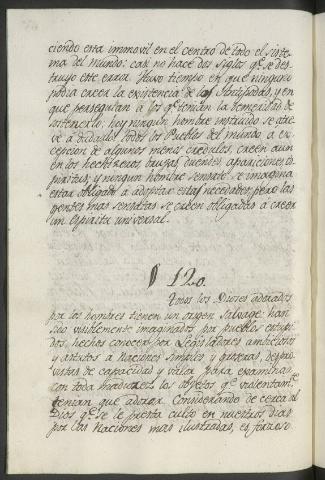 ciendo esta immovil en el centro de todo el siste-
ma del mundo: casi no hace dos siglos q.e se des-
truyo este error. Huvo tiempo en que ninguno
podia creer la existencia de los Antipodas, y en
que perseguian a los q.e tenian la temeridad de
sostenerlo; hoy ningun hombre instruido se atre-
ve a dudarlo. Todos los Pueblos del mundo a ex-
cepcion de algunos menos credulos, creen aun
en los hechizeros, brujas, duentes, apariciones, es-
piritus; y ningun hombre sensato se imagina
estar obligado a adoptar estas necedades; pero las
gentes mas sensatas se creen obligadas a creer
un Espiritu universal.
§ 120.
Todos los Dioses adorados
por los hombres tienen un origen salvage: han
sido visiblemente imaginados por pueblos estupi-
dos, hechos conocer por Legisladores ambiciosos
y astutos à Naciones simples y groseras, despro-
vistas de capacidad y valor para examinar
con toda madurez los objetos q.e violentam.te
tenian que adorar. Considerando de cerca al
Dios q.e se le presta culto en nuestros dias
por las Naciones mas ilustradas, es forzoso